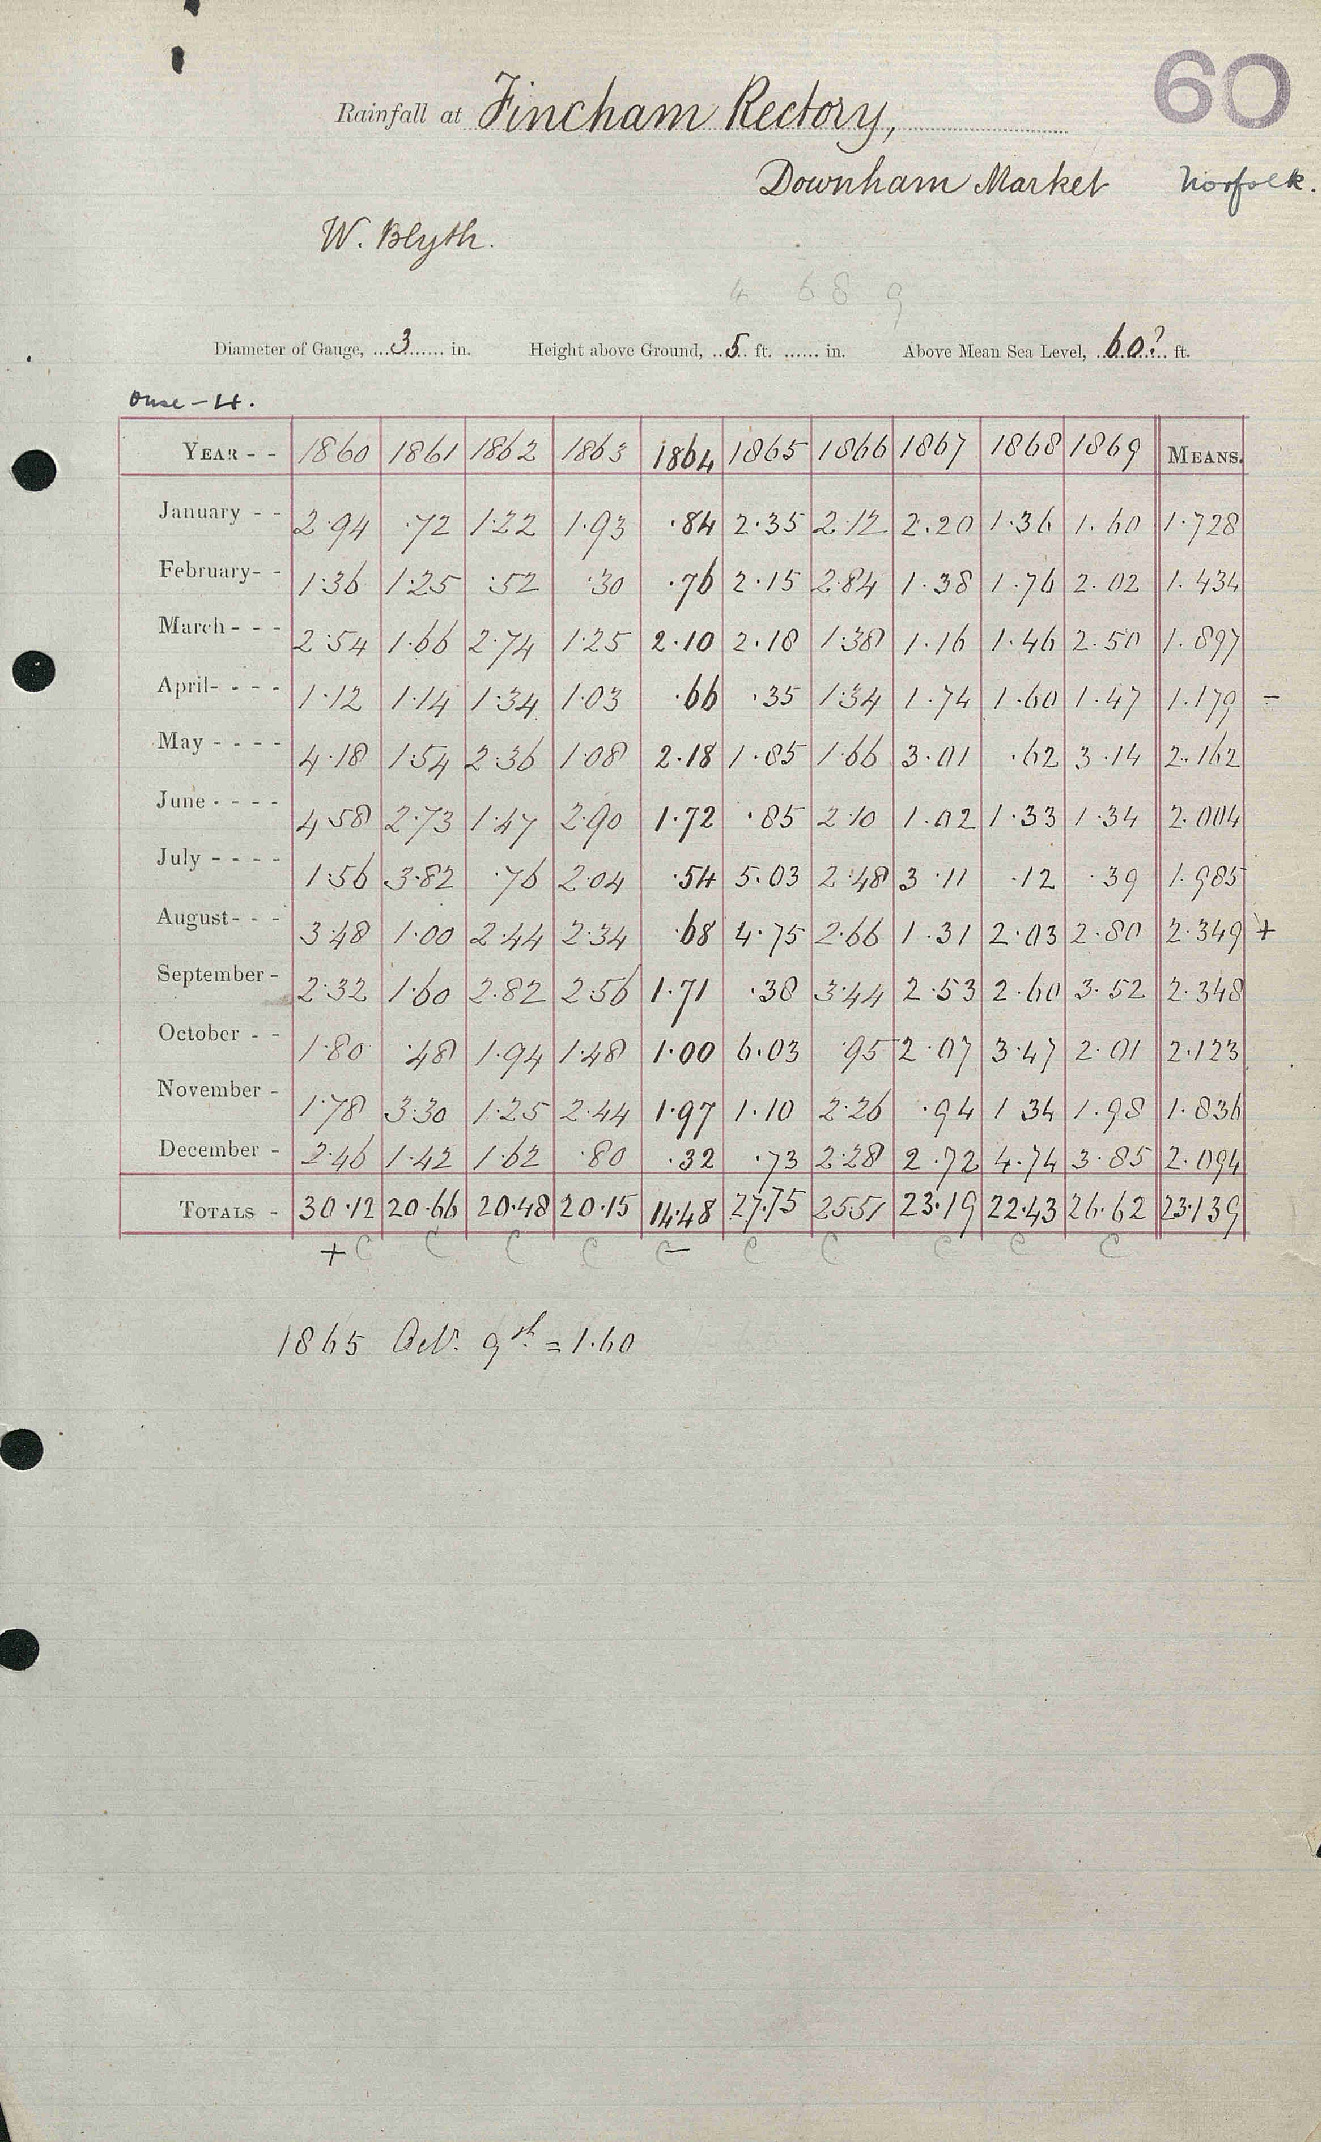 60
Rainfall at Fincham Rectory,
Downham Market Norfolk.
W. Blyth.
4 6 8 9
Diameter of Gauge, ...3...... in. Height above Ground, ..5.. ft. ...... in. Above Mean Sea Level, ..60?.. ft.
Ouse - H.
YEAR - - 1860 1861 1862 1863 1864 1865 1866 1867 1868 1869 MEANS.
January - - 2.94 .72 1.22 1.93 .84 2.35 2.12 2.20 1.36 1.60 1.728
February- - 1.36 1.25 .52 .30 .76 2.15 2.84 1.38 1.76 2.02 1.434
March - - - 2.54 1.66 2.74 1.25 2.10 2.18 1.38 1.16 1.46 2.50 1.897
April- - - - 1.12 1.14 1.34 1.03 .66 .35 1.34 1.74 1.60 1.47 1.179 -
May - - - - 4.18 1.54 2.36 1.08 2.18 1.85 1.66 3.01 .62 3.14 2.162
June - - - - 4.58 2.73 1.47 2.90 1.72 .85 2.10 1.02 1.33 1.34 2.004
July - - - - 1.56 3.82 .76 2.04 .54 5.03 2.48 3.11 .12 .39 1.985
August- - - 3.48 1.00 2.44 2.34 .68 4.75 2.66 1.31 2.03 2.80 2.349 +
September - 2.32 1.60 2.82 2.56 1.71 .38 3.44 2.53 2.60 3.52 2.348
October - - 1.80 .48 1.94 1.48 1.00 6.03 .95 2.07 3.47 2.01 2.123
November - 1.78 3.30 1.25 2.44 1.97 1.10 2.26 .94 1.34 1.98 1.836
December - 2.46 1.42 1.62 .80 .32 .73 2.28 2.72 4.74 3.85 2.094
TOTALS - 30.12 20.66 20.48 20.15 14.48 27.75 25.51 23.19 22.43 26.62 23.139
+ C C C C - C C C C C
1865 Oct. 9th = 1.60